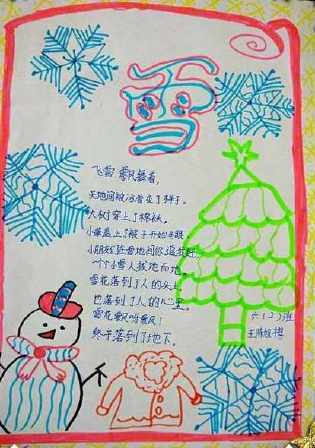 雪
飞雪飘舞着,
天地间被冷着在了样子。
大树穿上了棉袄。
小草盖上了被子开始冬眠。
小朋友在雪地间你追我赶
一个个小雪人拔地而起。
雪花落到了人的头上,
也落到了人的心里。
雪花飘呀飘呀!
终于落到了地下。
六(2)班